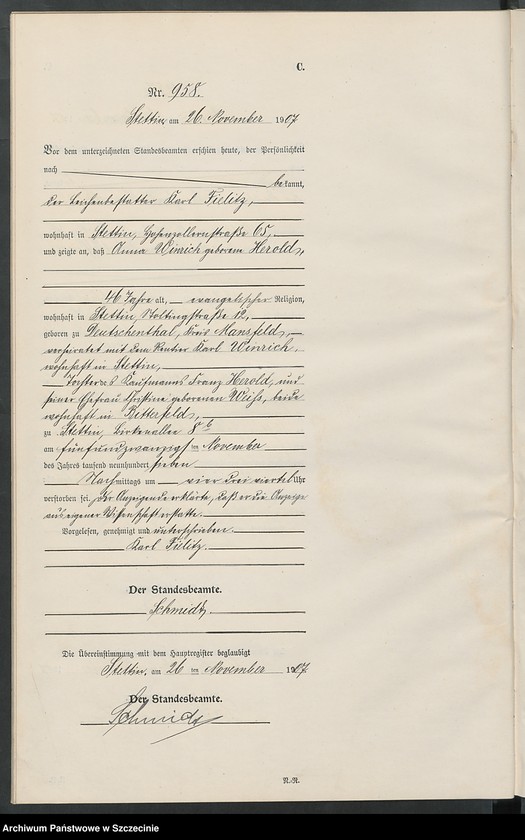 C.
Nr. 958.
Stettin, am 26. November 1907
Vor dem unterzeichneten Standesbeamten erschien heute, der Persönlichkeit
nach
bekannt,
der Leichenbestatter Karl Fielitz,
wohnhaft in Stettin, Hohenzollernstraße 65,
und zeigte an, daß Anna Winrich geborene Herold,
46 Jahre alt, evangelischer Religion,
wohnhaft in Stettin, Noltingstraße 12,
geboren zu Deutschenthal, Kreis Mansfeld,
verheiratet mit dem Rentier Karl Winrich,
wohnhaft in Stettin,
Tochter des Kaufmanns Franz Herold, und
seiner Ehefrau Christine geborenen Weiß, beide
wohnhaft in Bitterfeld,
zu Stettin, Birkenallee 8 b
am fünfundzwanzigsten November
des Jahres tausend neunhundert sieben
Nachmittags um vier drei viertel Uhr
verstorben sei. Der Anzeigende erklärte, daß er die Anzeige
aus eigener Wissenschaft erstatte.
Vorgelesen, genehmigt und unterschrieben.
Karl Fielitz.
Der Standesbeamte.
Schmidt.
Die Übereinstimmung mit dem Hauptregister beglaubigt
Stettin, am 26 ten November 1907
Der Standesbeamte.
Schmidt
Archiwum Państwowe w Szczecinie